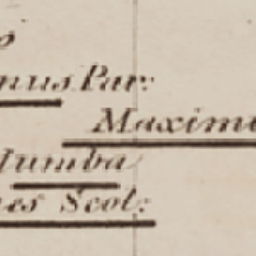 nus Par:
Maximu
Numba
es Scol: